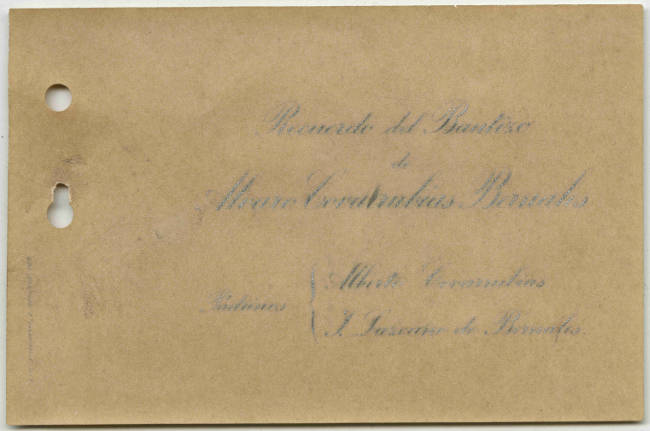 Recuerdo del Bautizo
de
Alvaro Covarrubias Bernales
Padrinos
Alberto Covarrubias
J. Luzcano de Bernales.